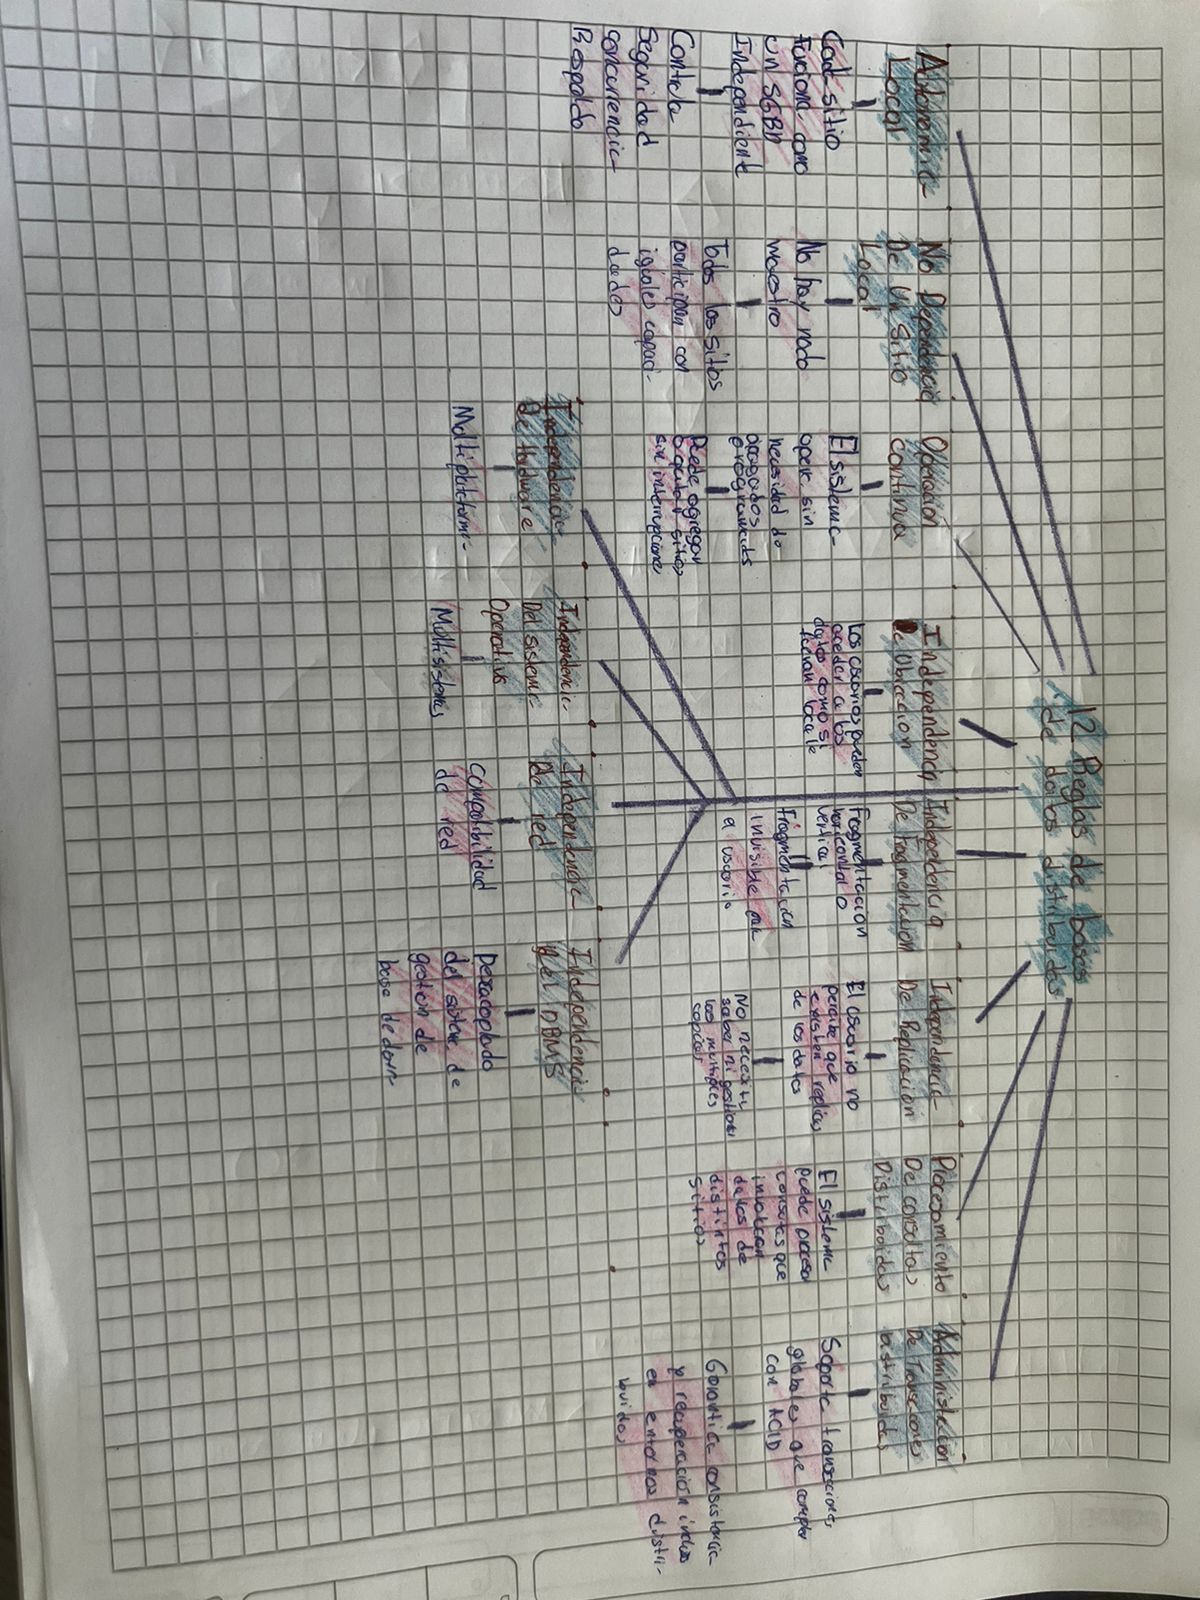 12 Reglas de bases
de datos distribuidas
Autonomia
Local
Cada sitio
Funciona como
un SGBD
Independiente
Controla
Seguridad
concurrencia
Respaldo
No Dependencia
De un Sitio
Local
No hay nodo
maestro
Todos los sitios
participan con
iguales capaci-
dades
Operacion
continua
El sistema
opera sin
necesidad de
apagados
programados
Puede agregar
o quitar sitios
sin interrupciones
Independencia
De Ubicacion
Los usuarios pueden
acceder a los
datos como si
fueran locale
Independencia
De Fragmentacion
Fragmentacion
horizontal o
vertical
Fragmentacion
invisible par
a usuario
Independencia
De Replicacion
El usuario no
percibe que
existen replicas
de los datos
No necesita
saber ni gestionar
las multiples
copias
Procesamiento
De consultas
Distribuidas
El sistema
puede procesar
consultas que
involucran
datos de
distintos
sitios
Administracion
De Transacciones
Distribuidas
Soporta transacciones
globales que cumplan
con ACID
Garantiza consistencia
y recuperacion incluso
en entornos distri-
buidos
Independencia
De Hardware
Multiplataforma
Independencia
Del sistema
Operativo
Multisistemas
Independencia
De red
Compatibilidad
de red
Independencia
del DBMS
Desacoplado
del sistema de
gestion de
base de datos